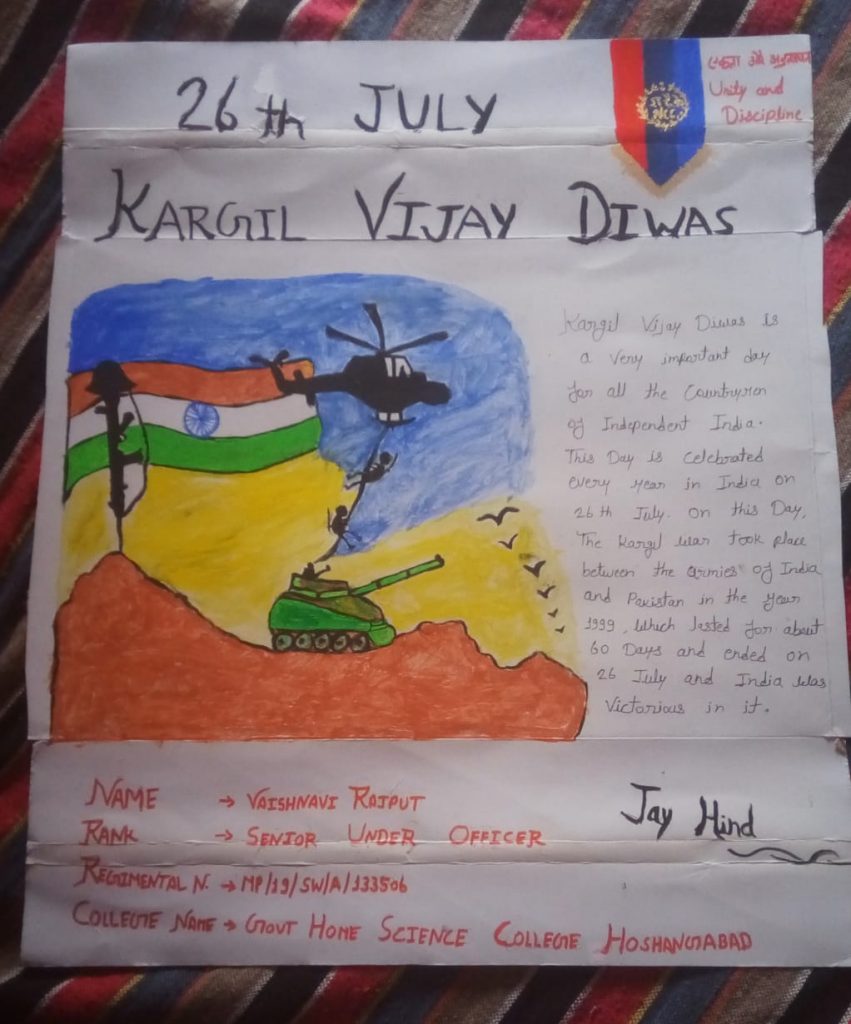 26th JULY
एकता और अनुशासन
Unity and
Discipline
NCC
KARGIL VIJAY DIWAS
Kargil Vijay Diwas is
a very important day
for all the Countrymen
of Independent India.
This Day is celebrated
every year in India on
26th July. on this Day,
The Kargil War took place
between the armies of India
and Pakistan in the year
1999, which lasted for about
60 Days and ended on
26 July and India was
Victorious in it.
Jay Hind
NAME → VAISHNAVI RAJPUT
RANK → SENIOR UNDER OFFICER
REGIMENTAL N. → MP/19/SW/A/133506
COLLEGE NAME → GOVT HOME SCIENCE COLLEGE HOSHANGABAD